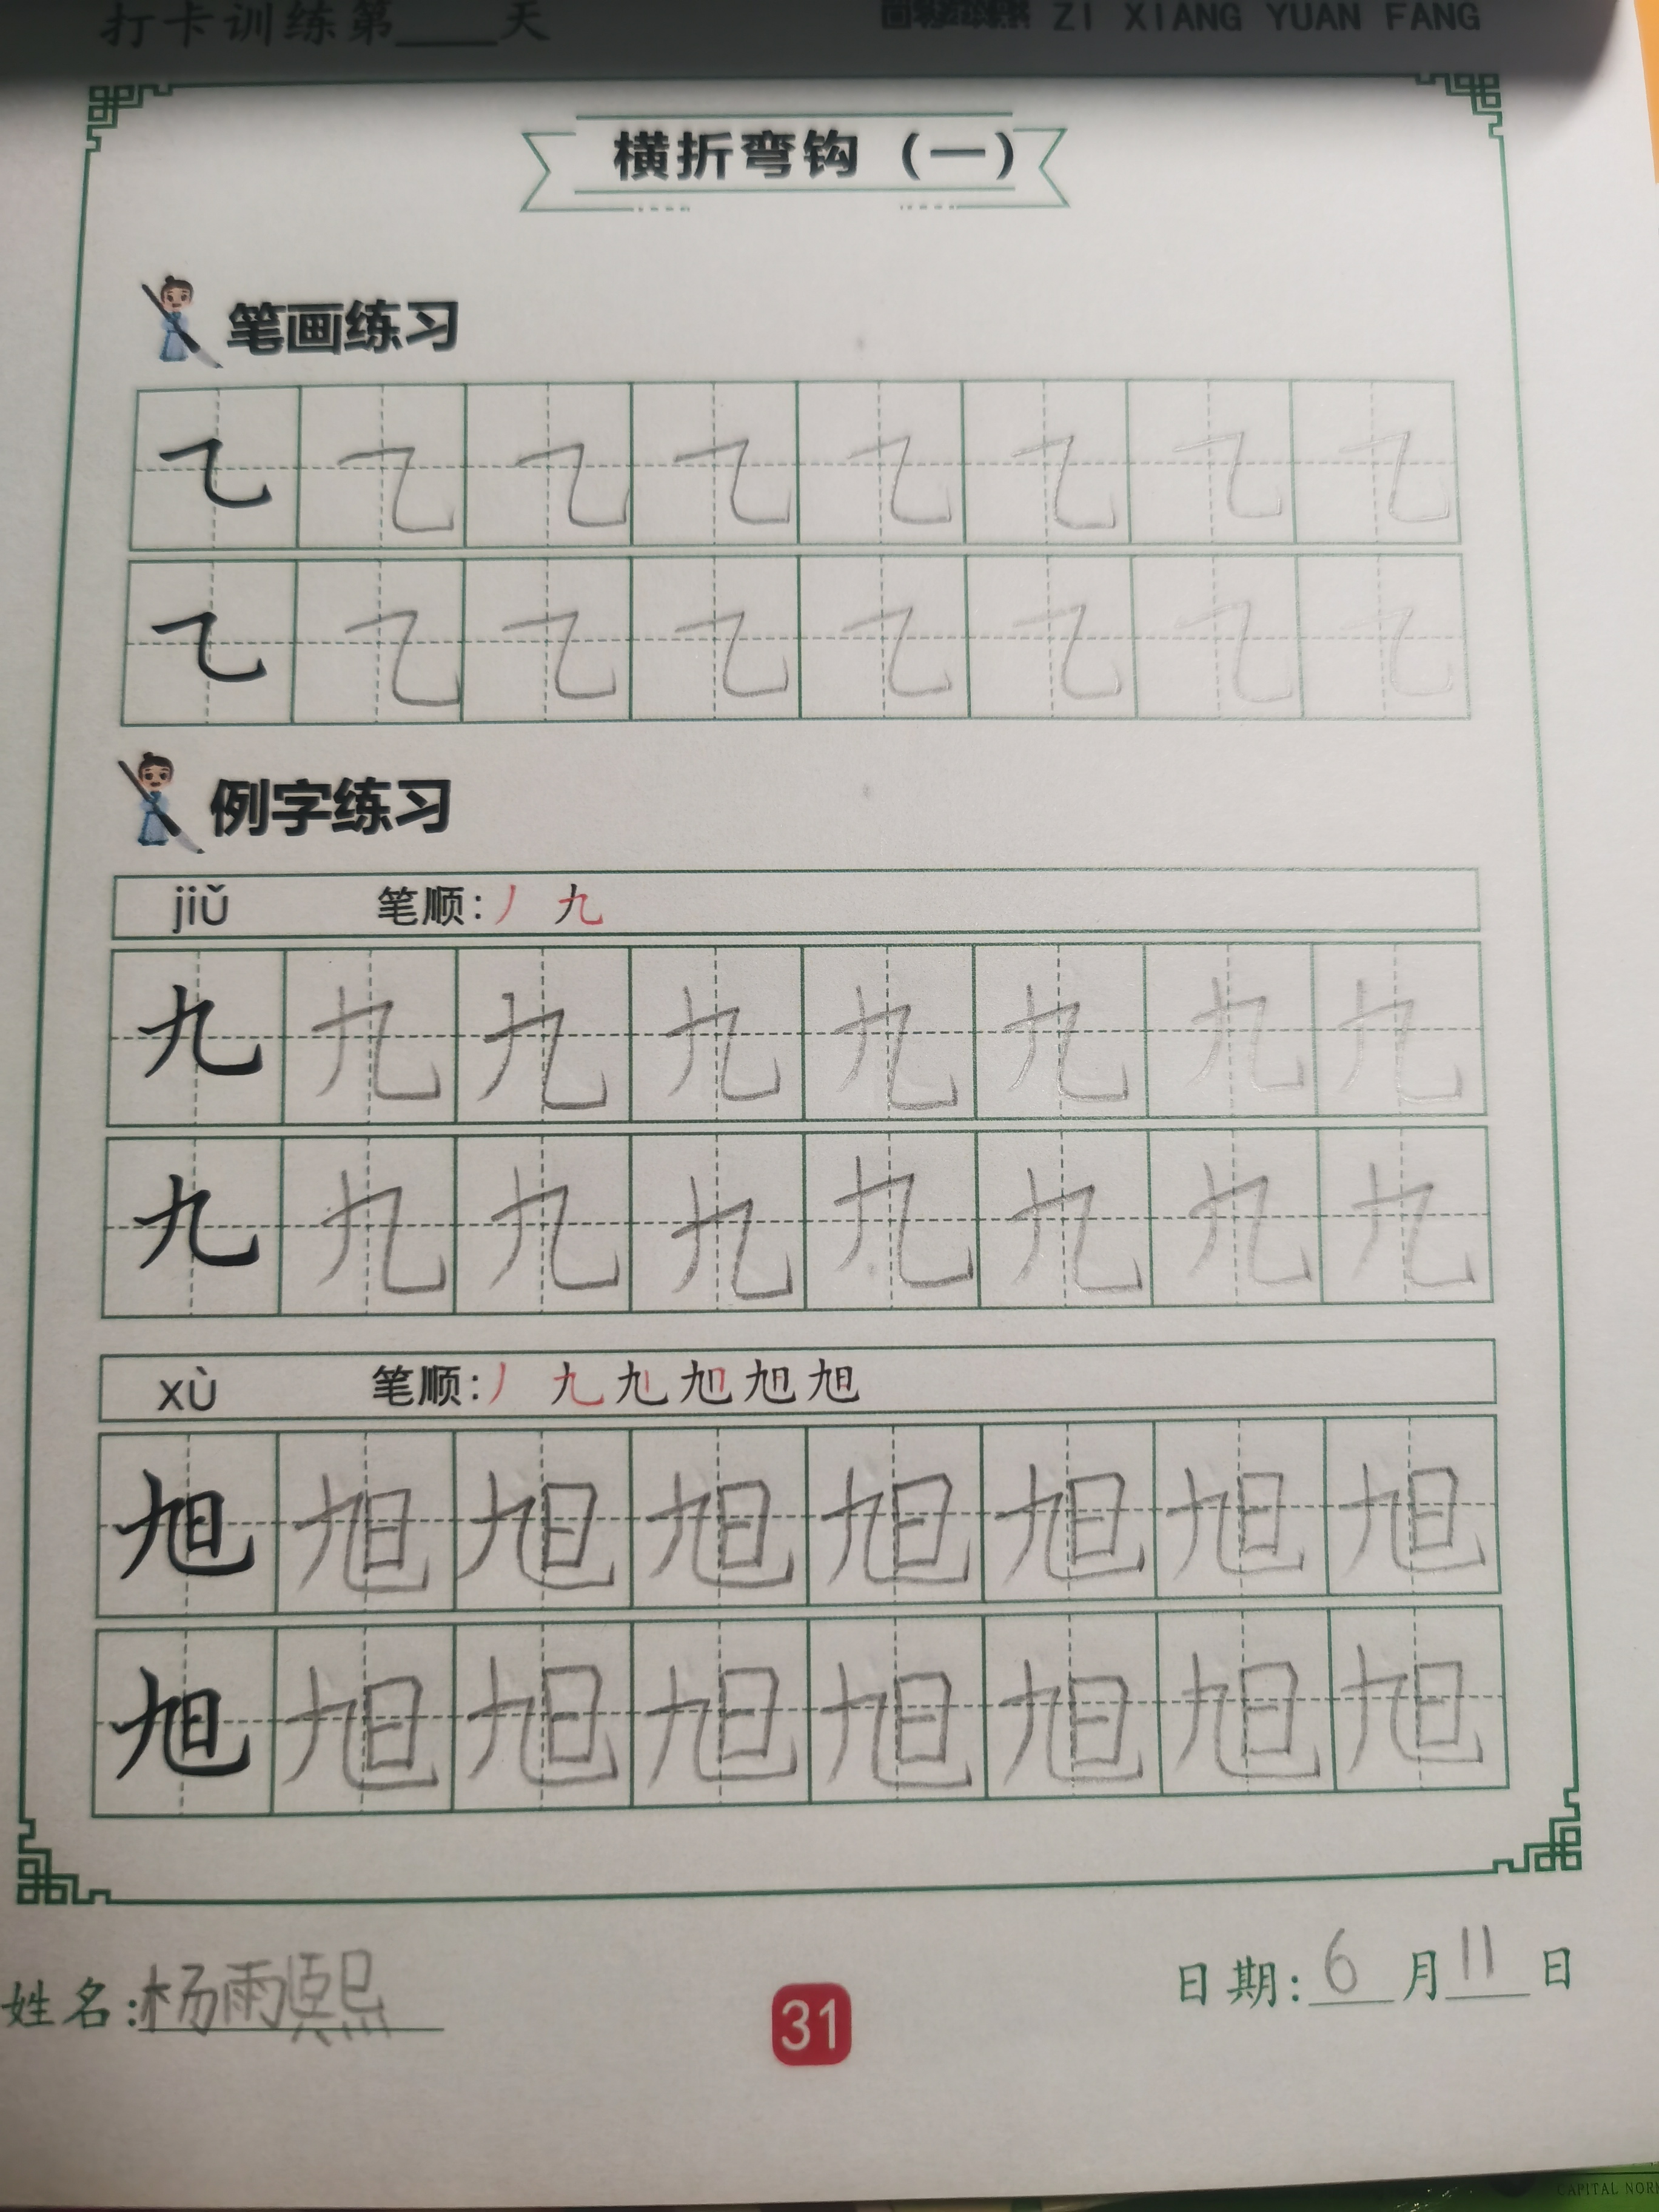 打卡训练第____天 ZI XIANG YUAN FANG
横折弯钩（一）
笔画练习
㇈ ㇈ ㇈ ㇈ ㇈ ㇈ ㇈ ㇈
㇈ ㇈ ㇈ ㇈ ㇈ ㇈ ㇈ ㇈
例字练习
jiǔ 笔顺:丿 九
九 九 九 九 九 九 九 九
九 九 九 九 九 九 九 九
xù 笔顺:丿 九
旭 旭 旭 旭 旭 旭 旭 旭
旭 旭 旭 旭 旭 旭 旭 旭
姓名:杨雨熙 31 日期:6月11日
CAPITAL NOR